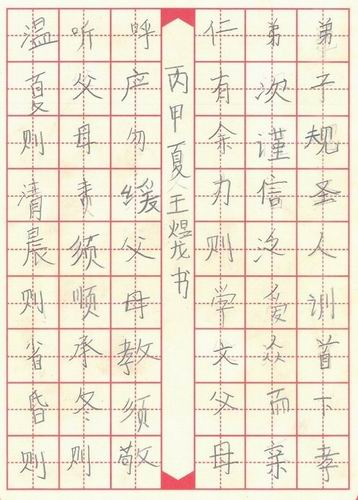 弟子规圣人训首下孝
弟次谨信泛爱众而亲
仁有余力则学文父母
丙甲夏王煜龙书
呼应勿缓父母教须敬
听父母责须顺承冬则
温夏则清晨则省昏则